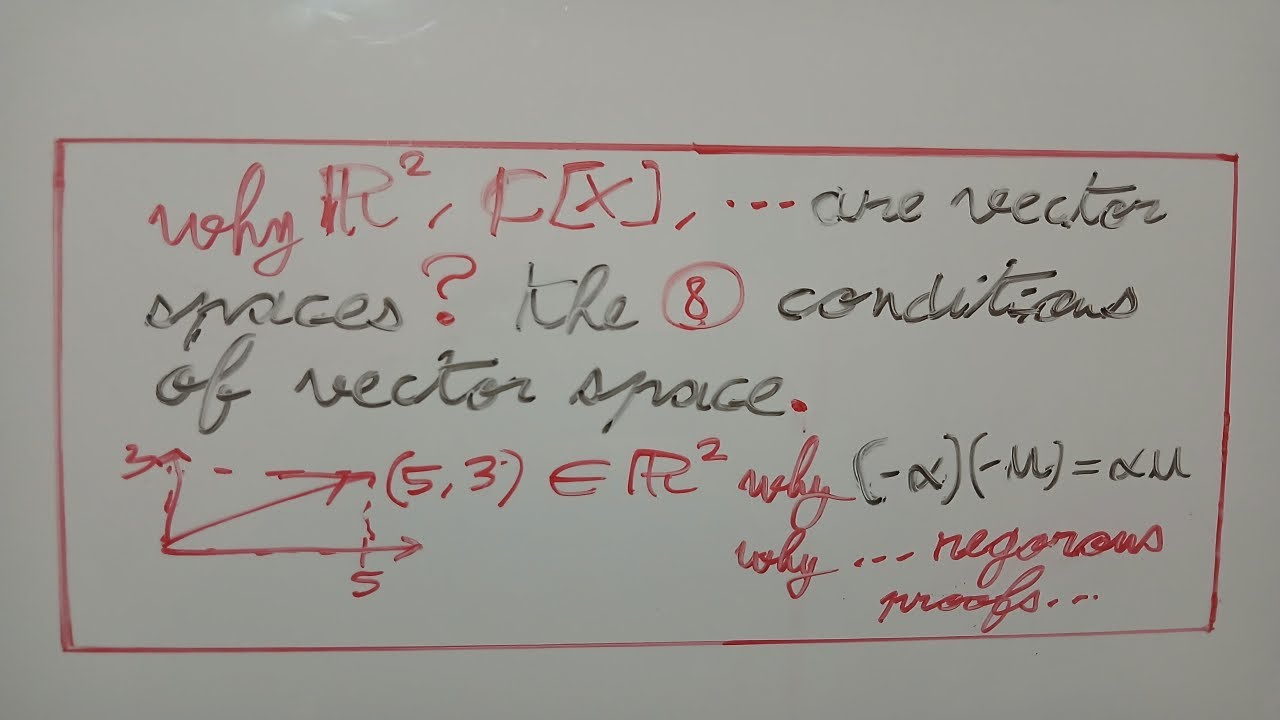 why ℝ², ℂ[X], ... are vector
spaces? the 8 conditions
of vector space.
3 (5, 3) ∈ ℝ² why (-α)(-u) = αu
5 why ... regorous
proofs...